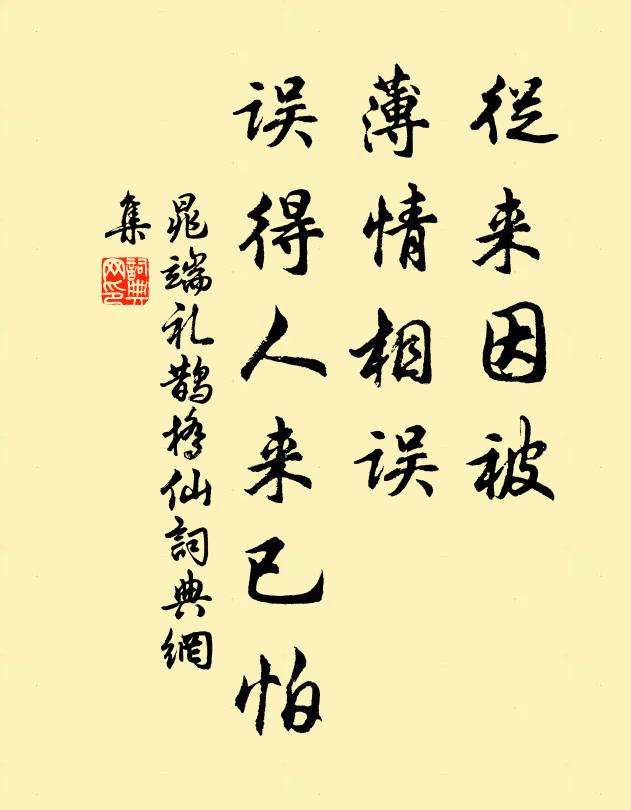 從来因被
薄情相误
误得人来已怕
晁端礼鹊橋仙詞典網
集
詞典
网印